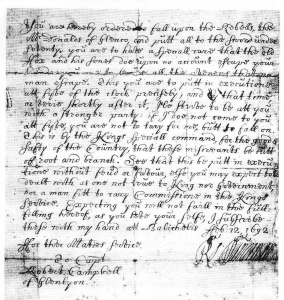 You are hereby ordered to fall upon the Rebells, the
McDonalds of Glenco, and putt all to the sword under
seventy. you are to have a speciall care that the old
fox and his sones doe upon no account escape your
hands, you are to secure all the avenues that no
man escape. This you are to putt in execution
att fyve of the clock precisely; and by that time,
or very shortly after it, I'le strive to be att you
with a stronger party: if I doe not come to you
att fyve, you are not to tary for me, butt to fall on.
This is by the Kings speciall command, for the good &
safty of the Country, that these miscreants be cutt
off root and branch. See that this be putt in execu
tione without feud or favour, else you may expect to be
dealt with as one not true to King nor Government,
nor a man fitt to cary Commissione in the Kings
Service. Expecting you will not faill in the full-
filling hereof, as you love your selfe, I subscribe
these with my hand att Balicholis Feb: 12, 1692
ffor their Maties service
To Capt
Robert Campbell
of Glenlyon.